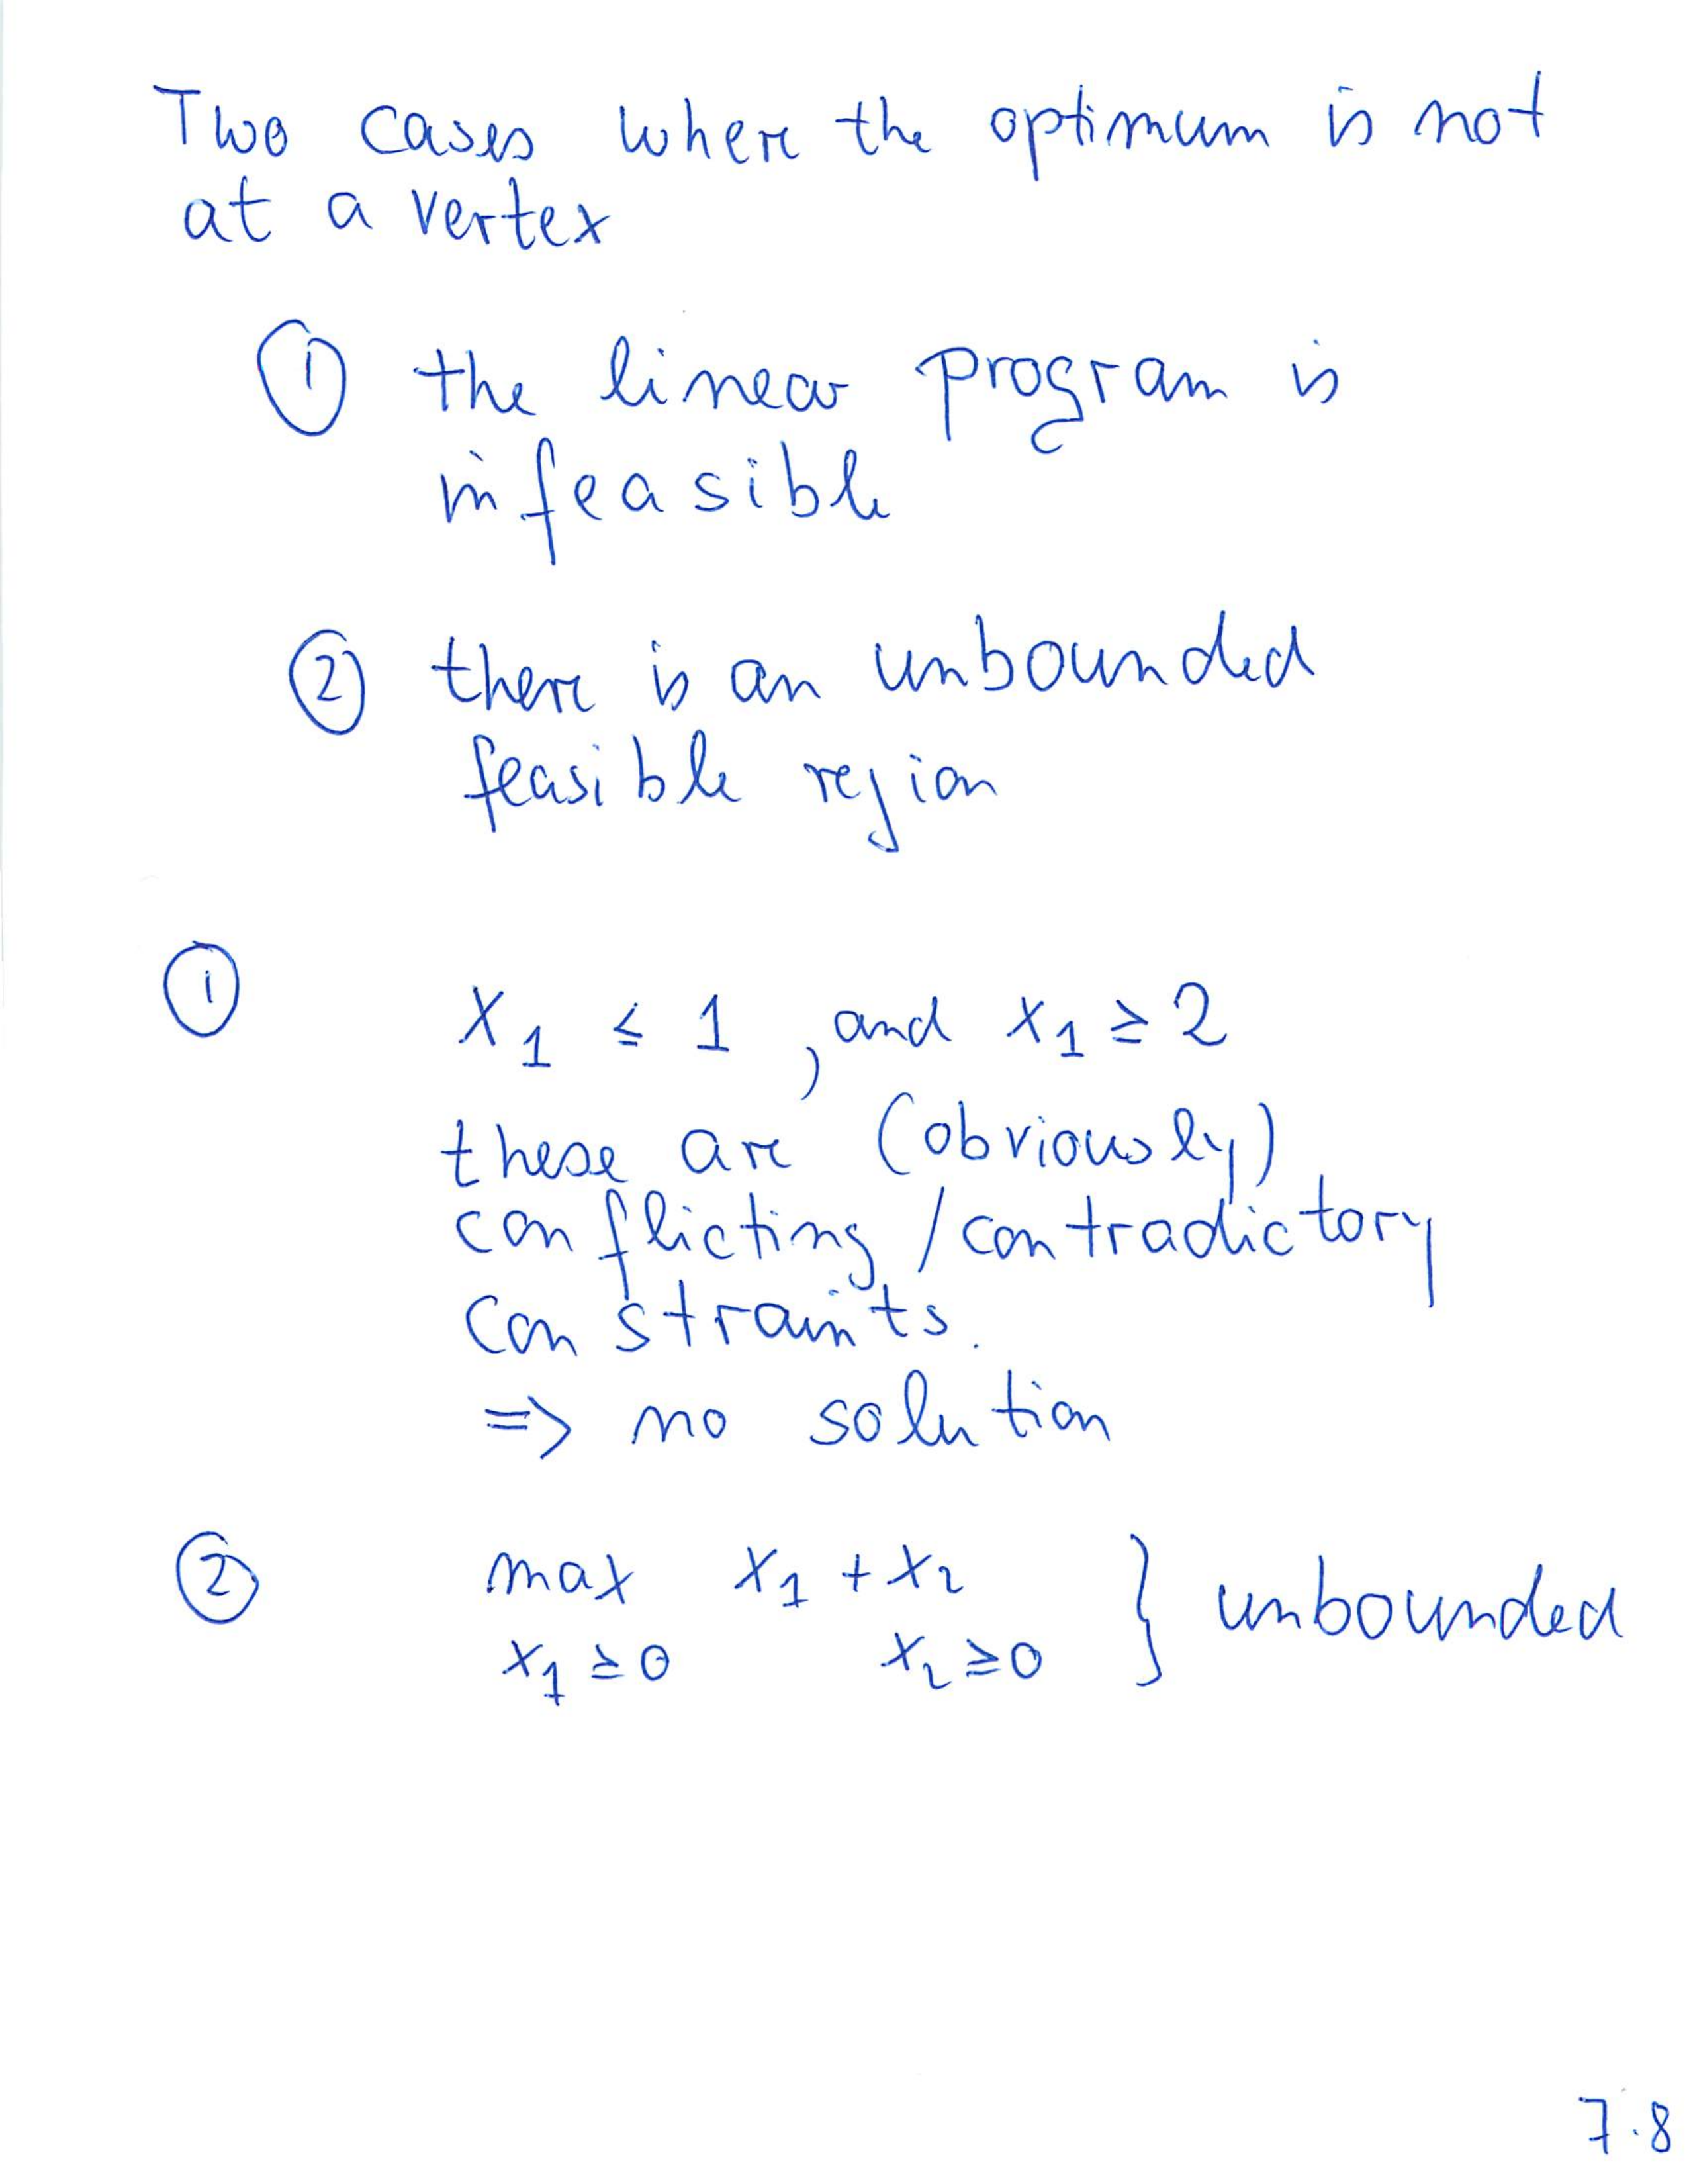 Two cases where the optimum is not
at a vertex
① the linear program is
infeasible
② there is an unbounded
feasible region
① x₁ ≤ 1, and x₁ ≥ 2
these are (obviously)
conflicting/contradictory
constraints.
=> no solution
② max x₁ + x₂ } unbounded
x₁ ≥ 0 x₂ ≥ 0
7.8